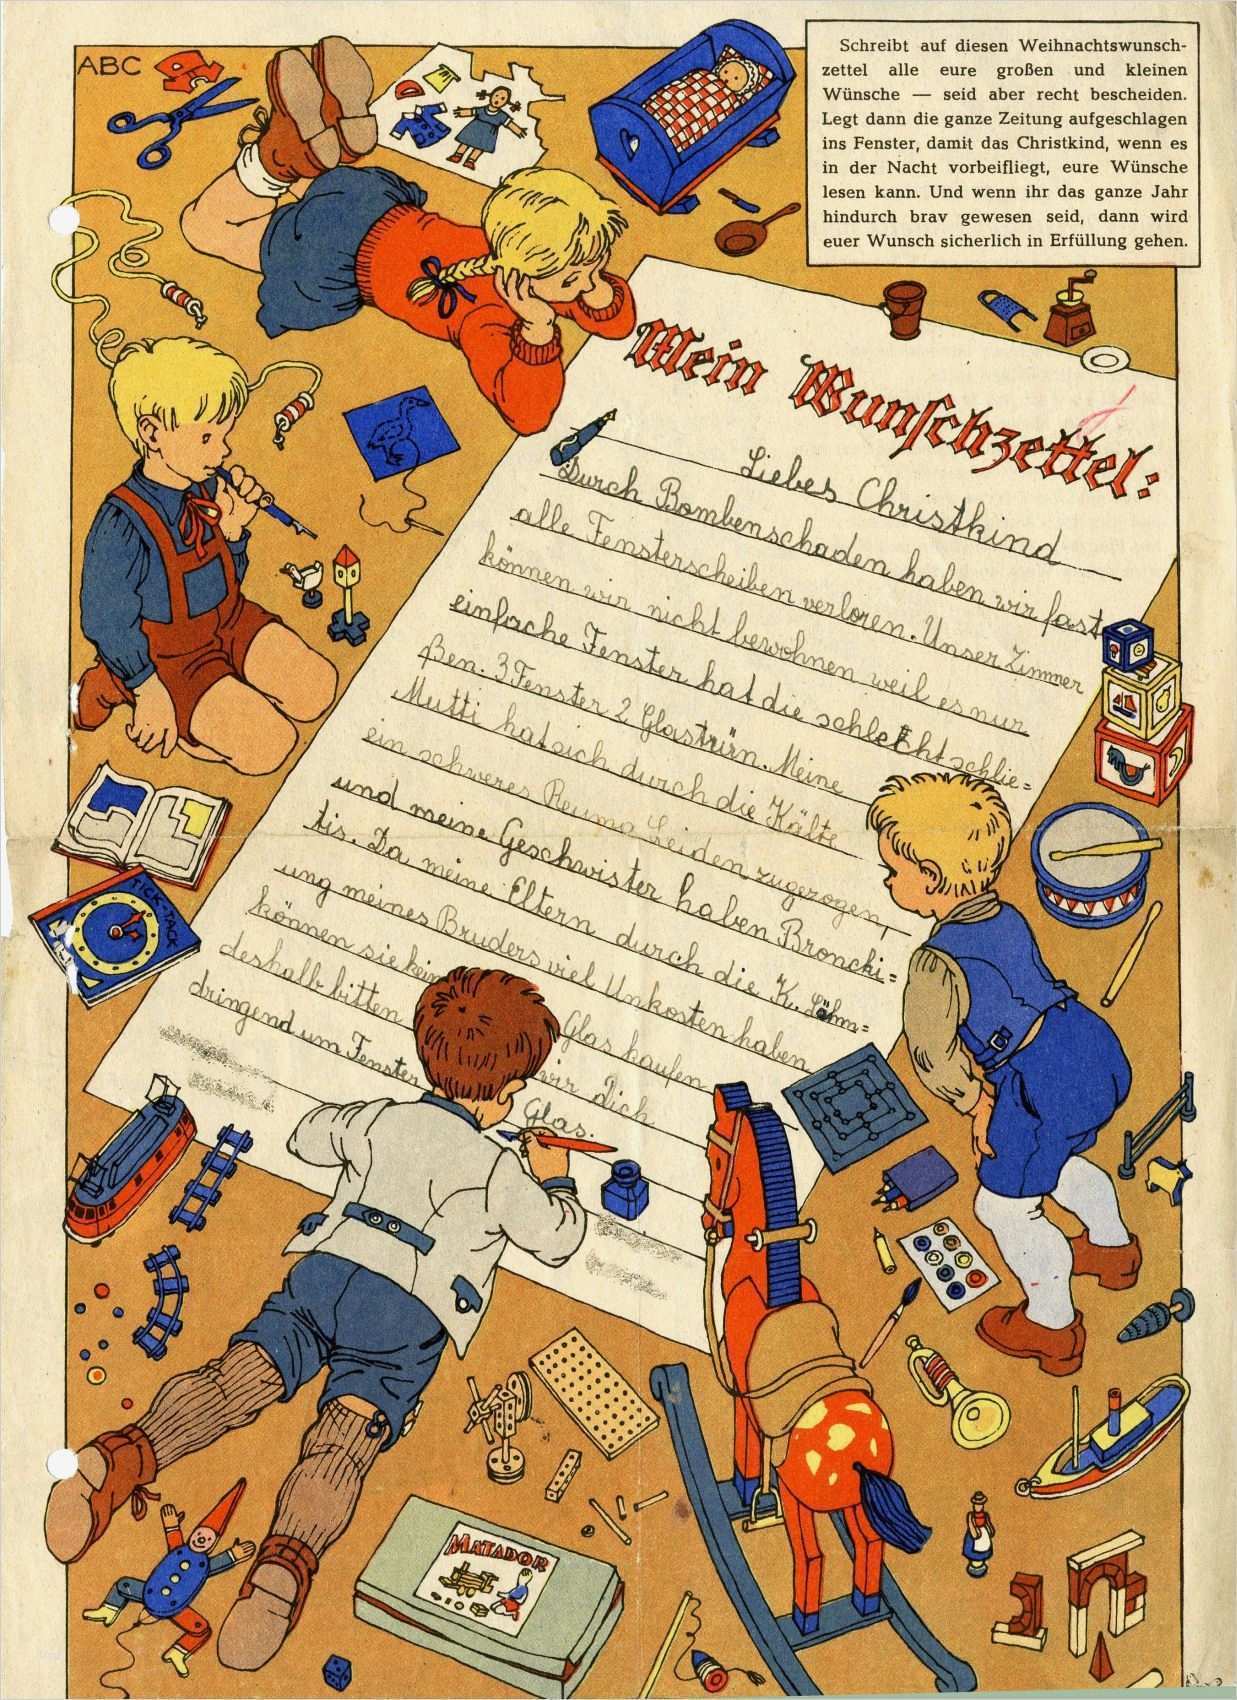 ABC
Schreibt auf diesen Weihnachtswunsch-
zettel alle eure großen und kleinen
Wünsche — seid aber recht bescheiden.
Legt dann die ganze Zeitung aufgeschlagen
ins Fenster, damit das Christkind, wenn es
in der Nacht vorbeifliegt, eure Wünsche
lesen kann. Und wenn ihr das ganze Jahr
hindurch brav gewesen seid, dann wird
euer Wunsch sicherlich in Erfüllung gehen.
Mein Wunschzettel:
Liebes Christkind
Durch Bombenschaden haben wir fast
alle Fensterscheiben verloren. Unser Zimmer
können wir nicht bewohnen weil es nur
einfache Fenster hat die schlecht schlie=
ßen. 3 Fenster 2 Glastürn. Meine
Mutti hat sich durch die Kälte
ein schweres Reuma Leiden zugezogen,
und meine Geschwister haben Broncki=
tis. Da meine Eltern durch die K. Lähm=
ung meines Bruders viel Unkosten haben
können sie kein Glas kaufen
deshalb bitten wir dich
dringend um Fenster Glas.
TICK-TACK
MATADOR